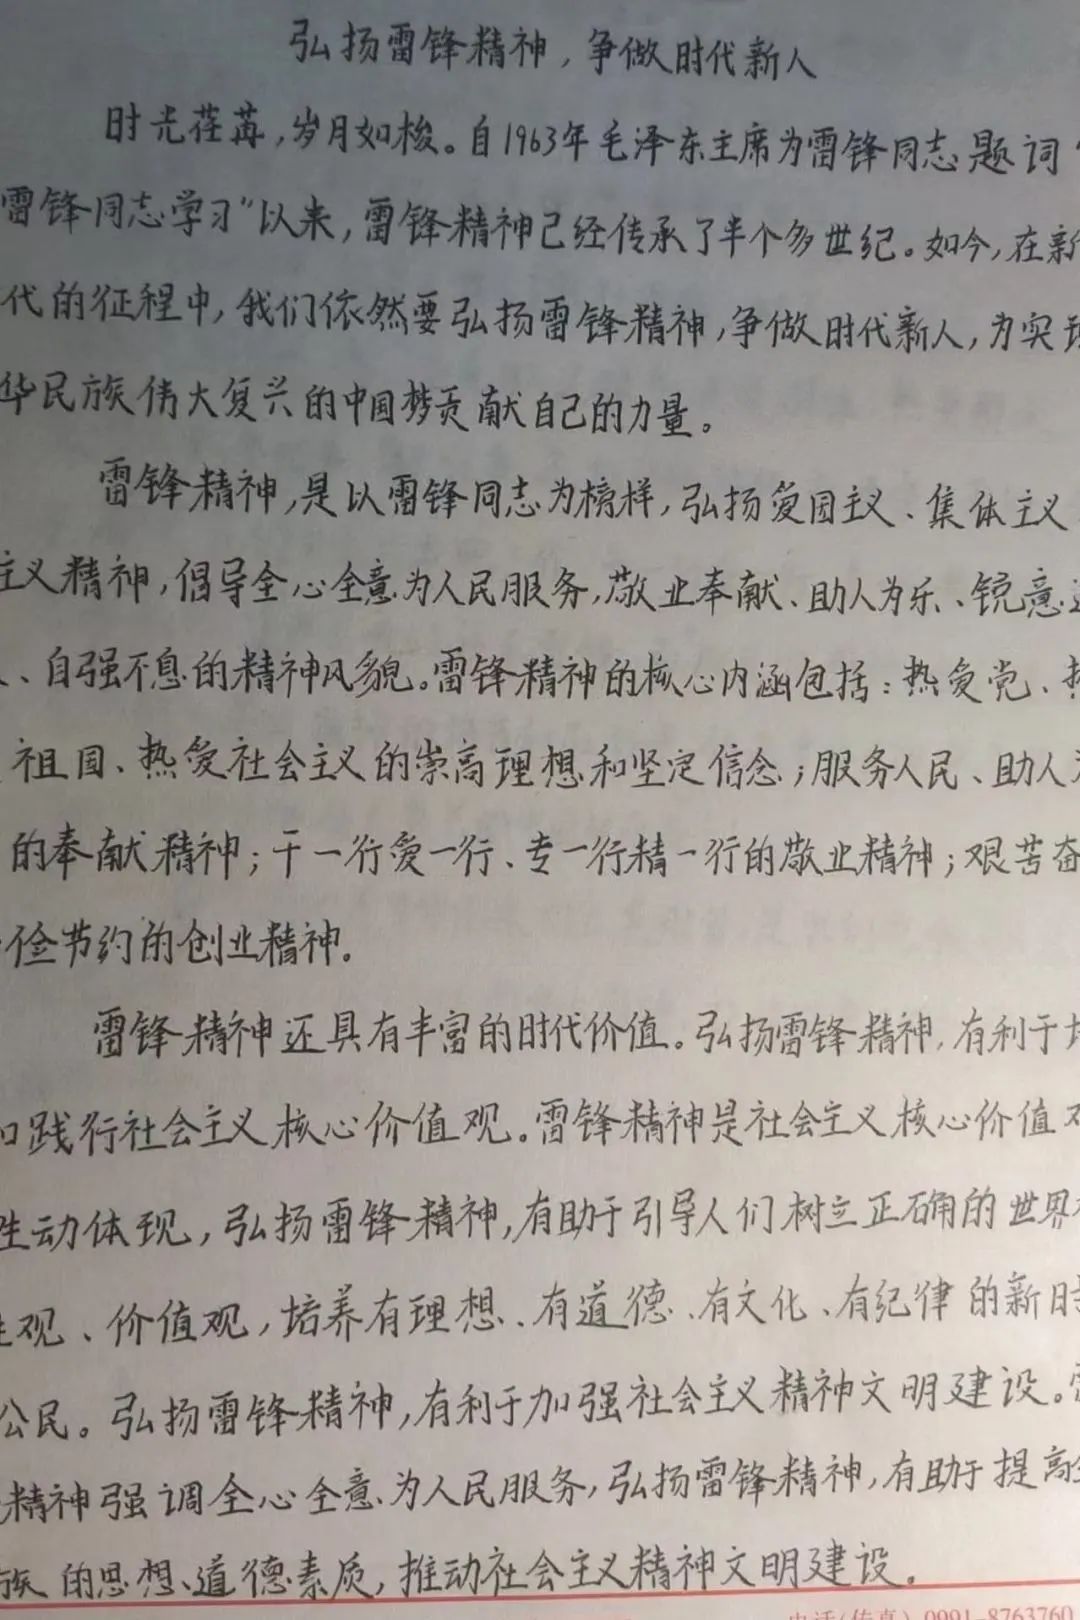 弘扬雷锋精神，争做时代新人
时光荏苒，岁月如梭。自1963年毛泽东主席为雷锋同志题词“
雷锋同志学习”以来，雷锋精神已经传承了半个多世纪。如今，在新
代的征程中，我们依然要弘扬雷锋精神，争做时代新人，为实现
华民族伟大复兴的中国梦贡献自己的力量。
雷锋精神，是以雷锋同志为榜样，弘扬爱国主义、集体主义
主义精神，倡导全心全意为人民服务，敬业奉献、助人为乐、锐意
、自强不息的精神风貌。雷锋精神的核心内涵包括：热爱党、热
祖国、热爱社会主义的崇高理想和坚定信念；服务人民、助人为
的奉献精神；干一行爱一行、专一行精一行的敬业精神；艰苦奋
俭节约的创业精神。
雷锋精神还具有丰富的时代价值。弘扬雷锋精神，有利于培
和践行社会主义核心价值观。雷锋精神是社会主义核心价值观
生动体现，弘扬雷锋精神，有助于引导人们树立正确的世界
观、价值观，培养有理想、有道德、有文化、有纪律的新时
公民。弘扬雷锋精神，有利于加强社会主义精神文明建设。
精神强调全心全意为人民服务，弘扬雷锋精神，有助于提高全
族的思想、道德素质，推动社会主义精神文明建设。
电话(传真) 0991-8763760